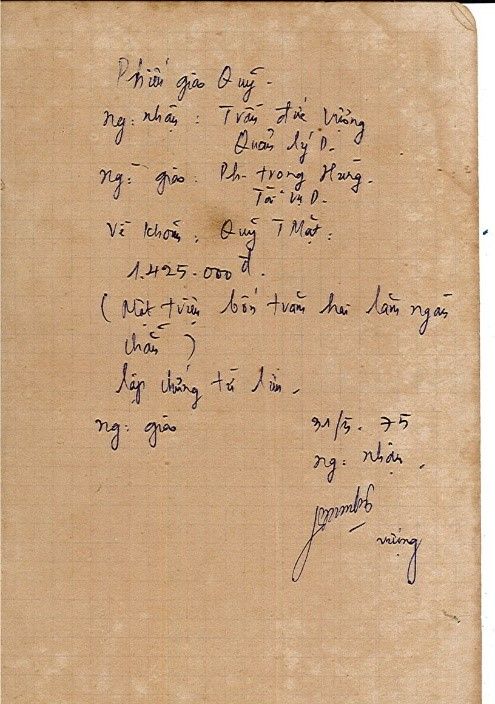 Phiếu giao Quỹ.
ng: nhận: Trần đức Vượng
Quản lý D.
ng: giao. Ph. trong Hùng.
Tài vụ D.
Về khoản: Quỹ T Mặt:
1.425.000 đ.
(Một triệu bốn trăm hai lăm ngàn
chẵn)
lập chứng từ lưu.
ng: giao
31/5. 75
ng: nhận.
vượng